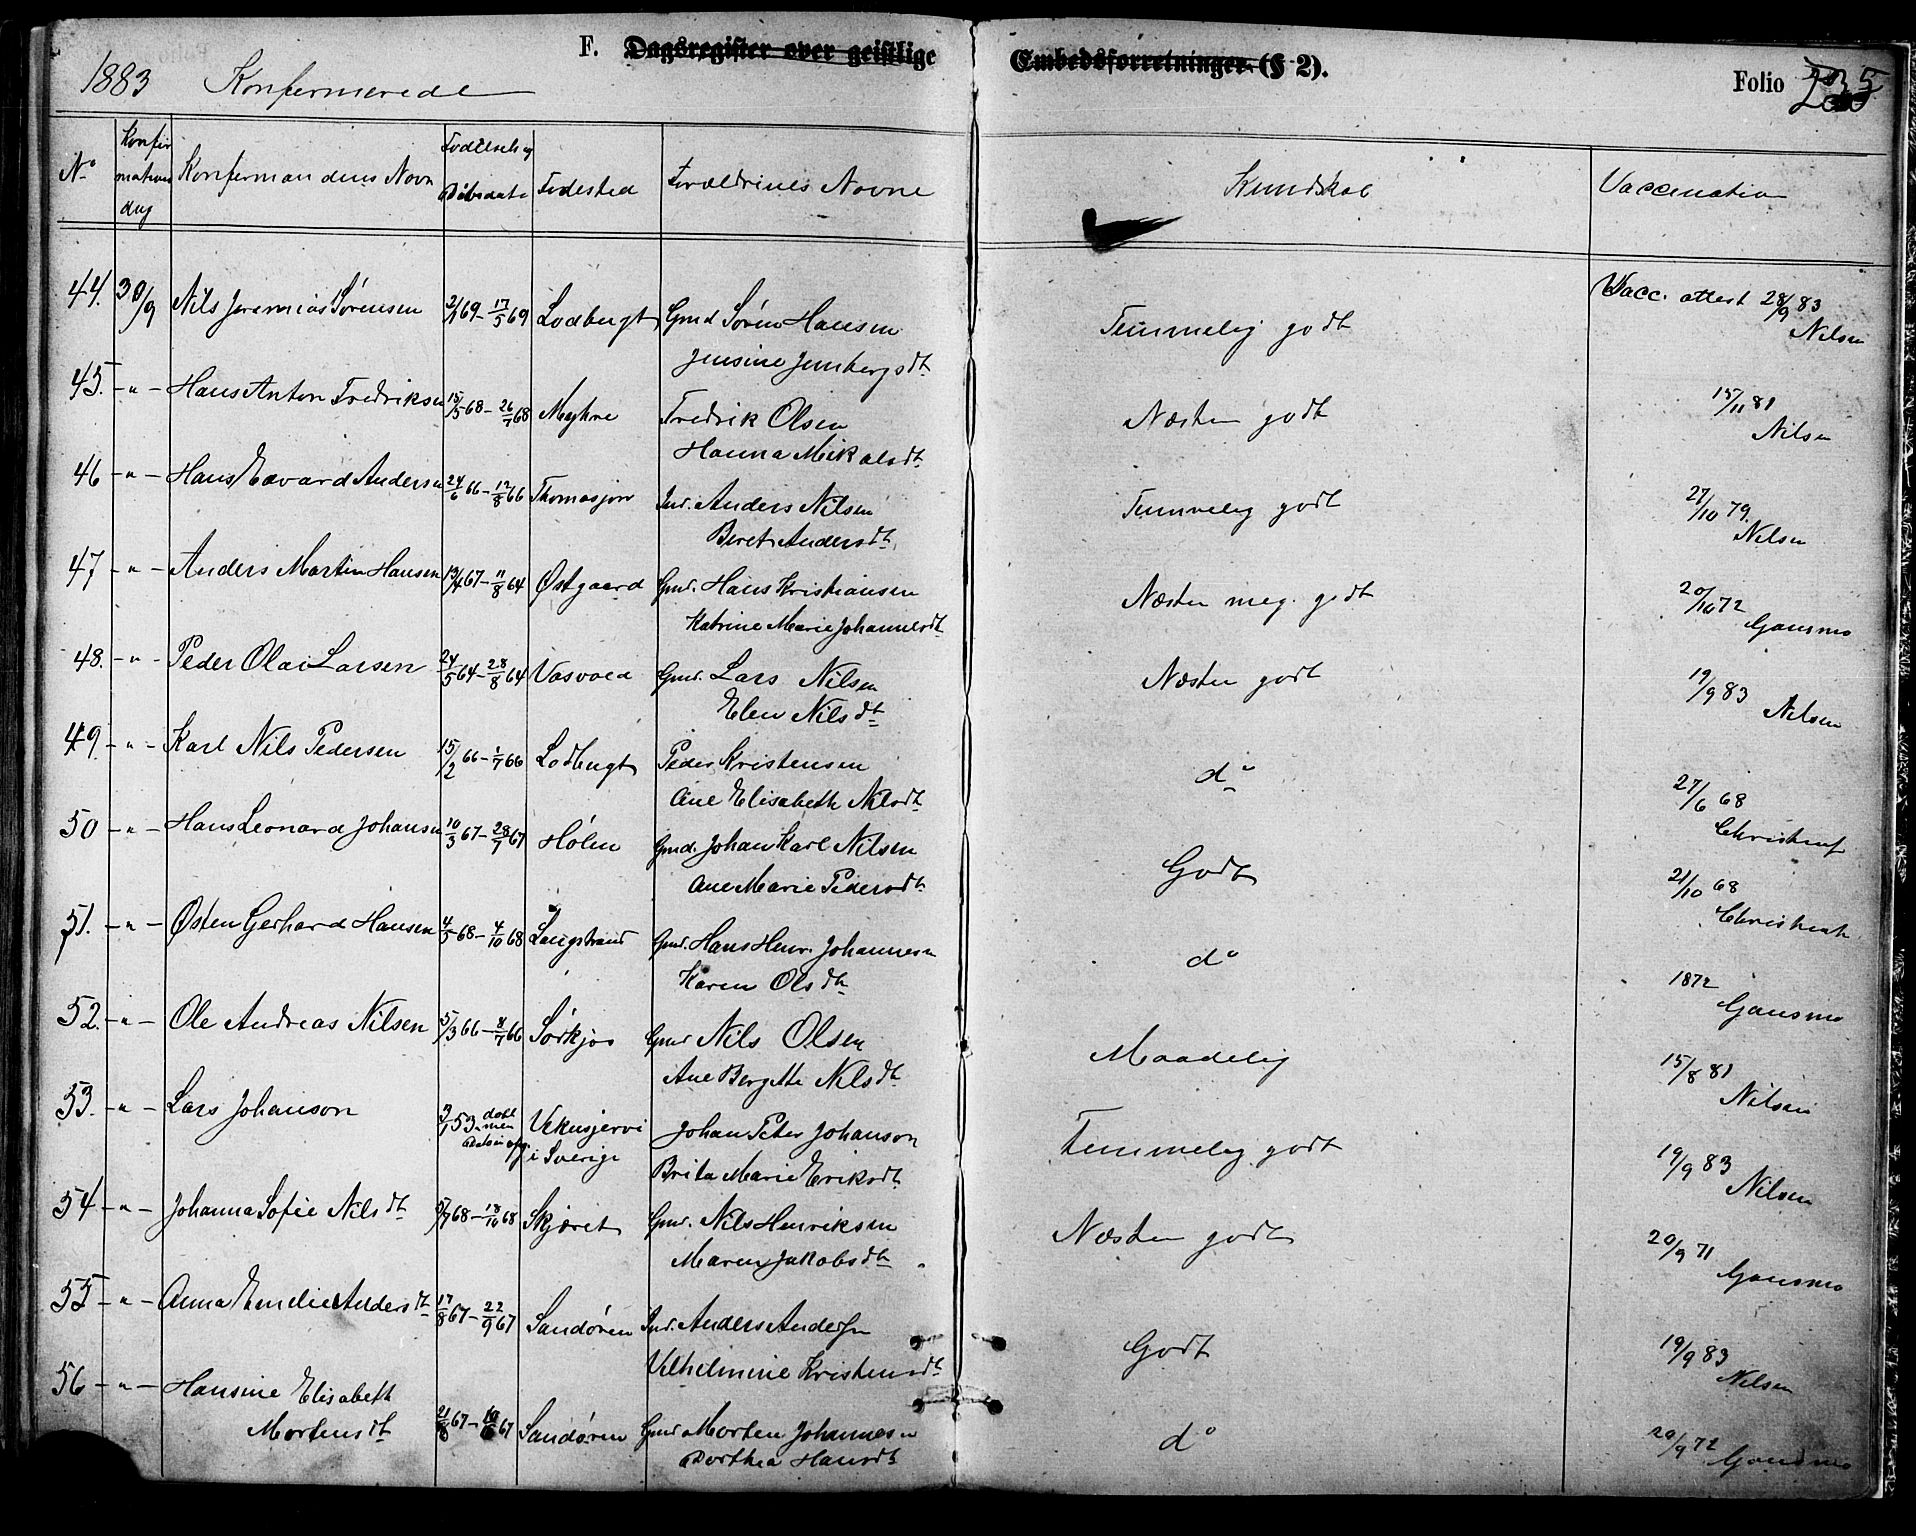 F. Dagsregister over geistlige Embedsforretninger (§ 2).
1883 Konfirmerede
Folio
No Konfirmationsdag Konfirmandens Navn Fødselsog Daabsdato Fødested Forældrenes Navne Kundskab Vaccination
44. 30/9 Nils Jeremias Sørensen 69 - 17/5 69 Lodbugt Gmd Søren Hansen Temmelig godt Vacc. attest 28/9 83
Jensine Jensbergsdt. Nilsen
45. -"- Hans Anton Fredriksen 15/5 68 - 26/7 68 Myhre Fredrik Olsen Næsten godt 15/11 81
Hanna Mikalsdt. Nilsen
46 -"- Hans Edvard Andersen 24/6 66 - 12/8 66 Thomasjor Ind. Anders Nilsen Temmelig godt 27/10 79.
Beret Andersdt. Nilsen
47 -"- Anders Martin Hansen 13/4 67 - 11/8 64 Østgaard Gmd. Hans Kristiansen Næsten meg. godt 20/10 72
Katrine Marie Johannesdt. Gansmo
48. -"- Peder Olai Larsen 24/5 64 - 28/8 64 Vasvold Gmd. Lars Nilsen Næsten godt 19/9 83
Elen Nilsdt. Nilsen
49. -"- Karl Nils Pedersen 15/2 66 - 1/7 66 Lodbugt Peder Kristensen do 27/6 68
Ane Elisabeth Nilsdt.
50 -"- Hans Leonard Johansen 10/3 67 - 28/7 67 Holen Gmd. Johan Karl Nilsen Godt 21/10 68
Ane Marie Pedersdt.
51. -"- Østen Gerhard Hansen 4/5 68 - 4/10 68 Langstrand Gmd. Hans Henr. Johannesen do 1872
Karen Olsdt. Gansmo
52. -"- Ole Andreas Nilsen 5/3 66 - 8/7 66 Sørkjos Gmd Nils Olsen Maadelig 15/8 81
Ane Bergitte Nilsdt. Nilsen
53. -"- Lars Johanson 53. Vekusjervi Johan Peter Johanson Temmelig godt 19/9 83
i Sverige Brita Marie Eriksdt. Nilsen
54 -"- Johanna Sofie Nilsdt. 68 - 18/10 68 Skjæret Gmd. Nils Henriksen Næsten godt 20/9 71
Maren Jakobsdt. Gansmo
55 -"- Anna Emelie Andersdt. 17/8 67 - 22/9 67 Sandøren Ind. Anders Andersen Godt 19/9 83
Vilhelmine Kristensdt. Nilsen
56 -"- Hansine Elisabeth
Mortensdt. 67 - 67 Sandøren Gmd Morten Johannesen do 20/9 72
Dorthea Hansdt. Gansmo